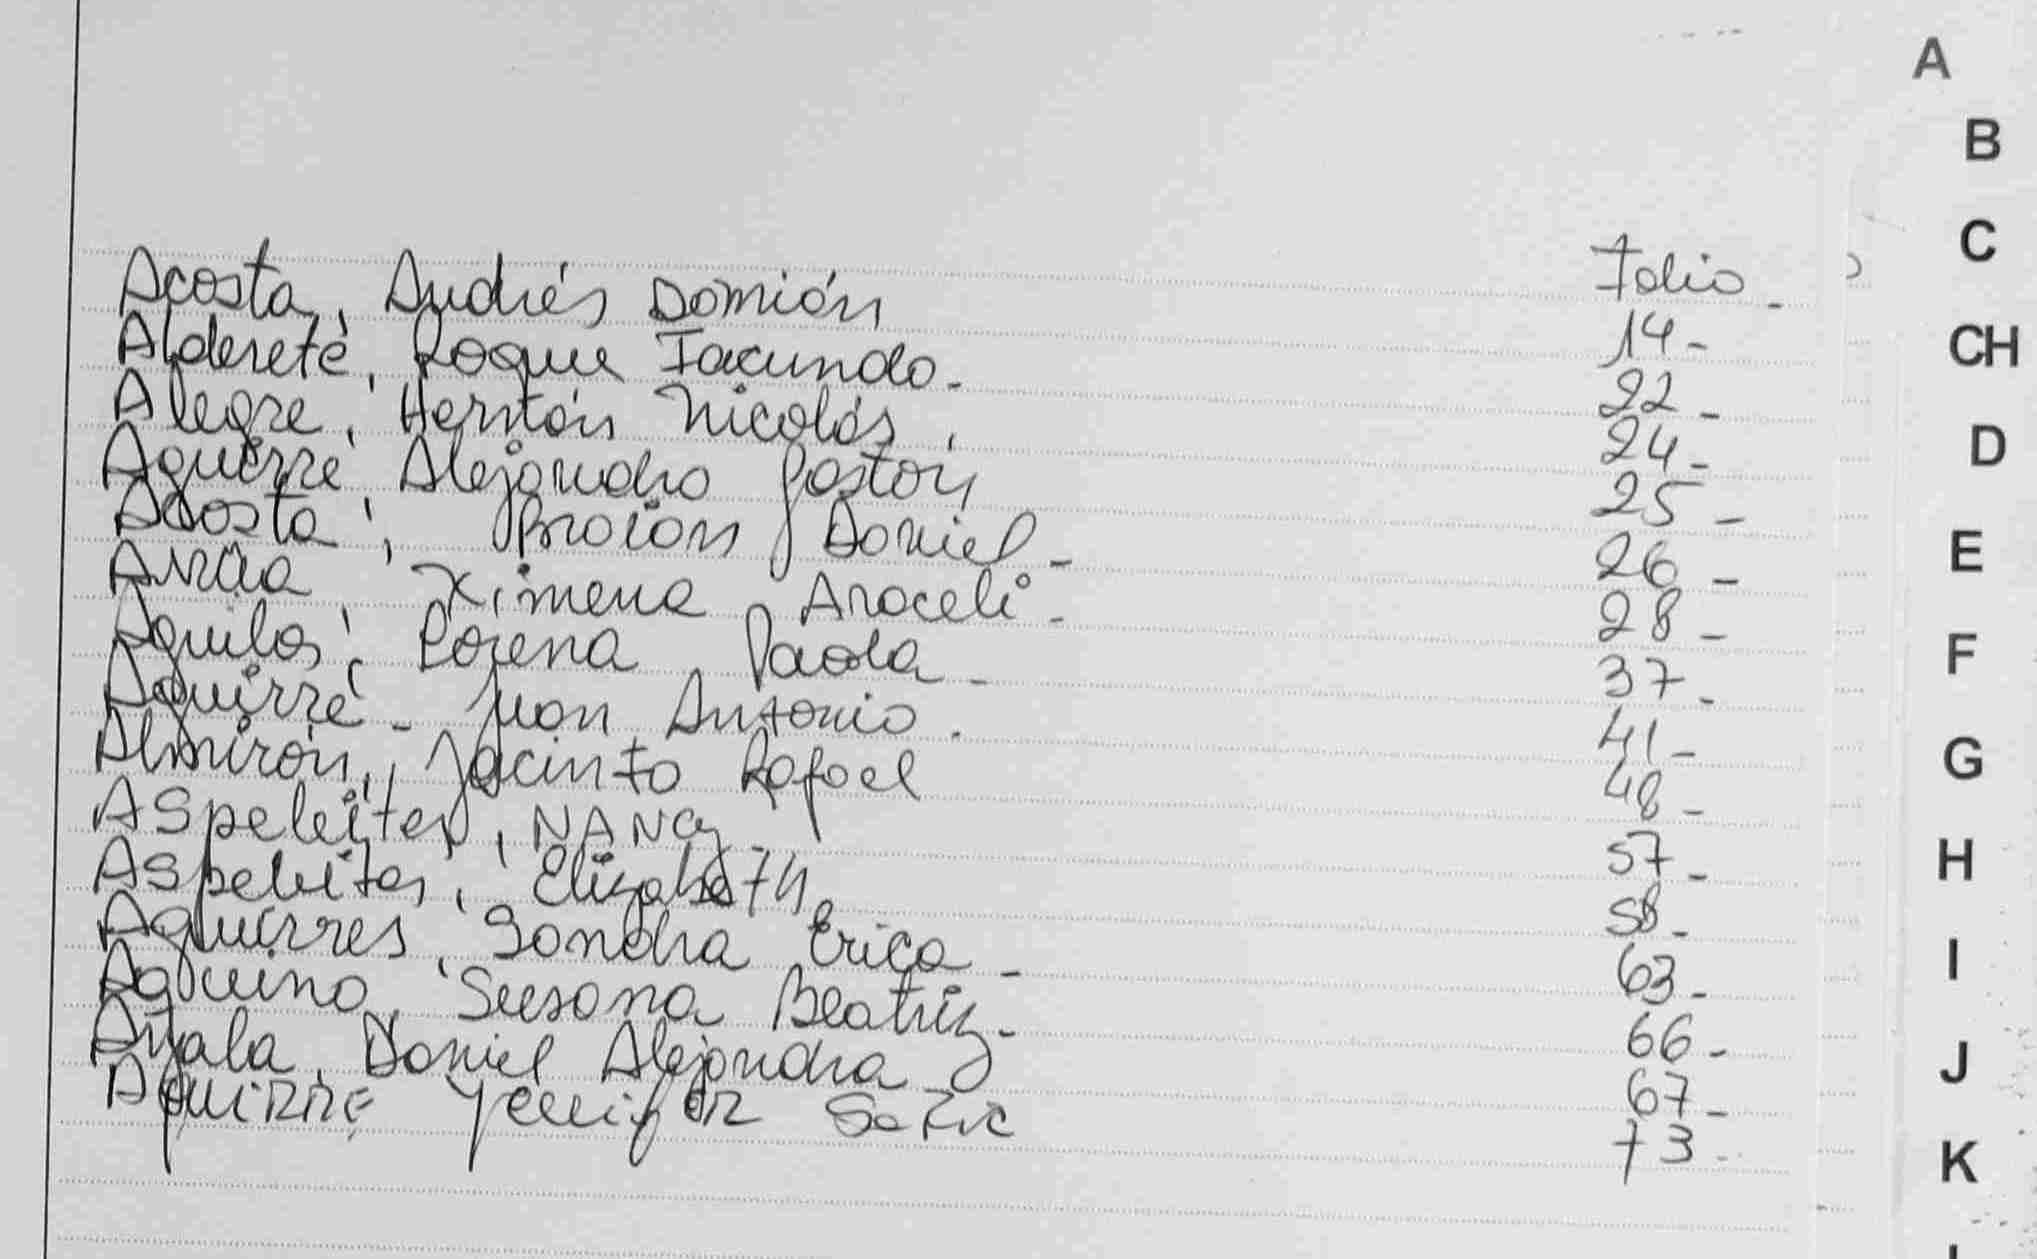 Folio -
Acosta, Andrés Damián 14 -
Alderete, Roque Facundo - 22 -
Alegre, Hernán Nicolás, 24 -
Aguirre, Alejandro Gastón 25 -
Acosta, Braian Daniel - 26 -
Ximena Araceli - 28 -
Lorena Paola - 37 -
Aguirre - Juan Antonio. 41 -
Almirón, Jacinto Rafael 48 -
Aspeleiter, NANCy 57 -
Aspeleiter, Elizabeth 58 -
Aguirres, Sandra Erica - 63 -
Aquino, Susana Beatriz - 66 -
Ayala, Daniel Alejandra - 67 -
AguiRRE Yennifer 73 -
A
B
C
CH
D
E
F
G
H
I
J
K